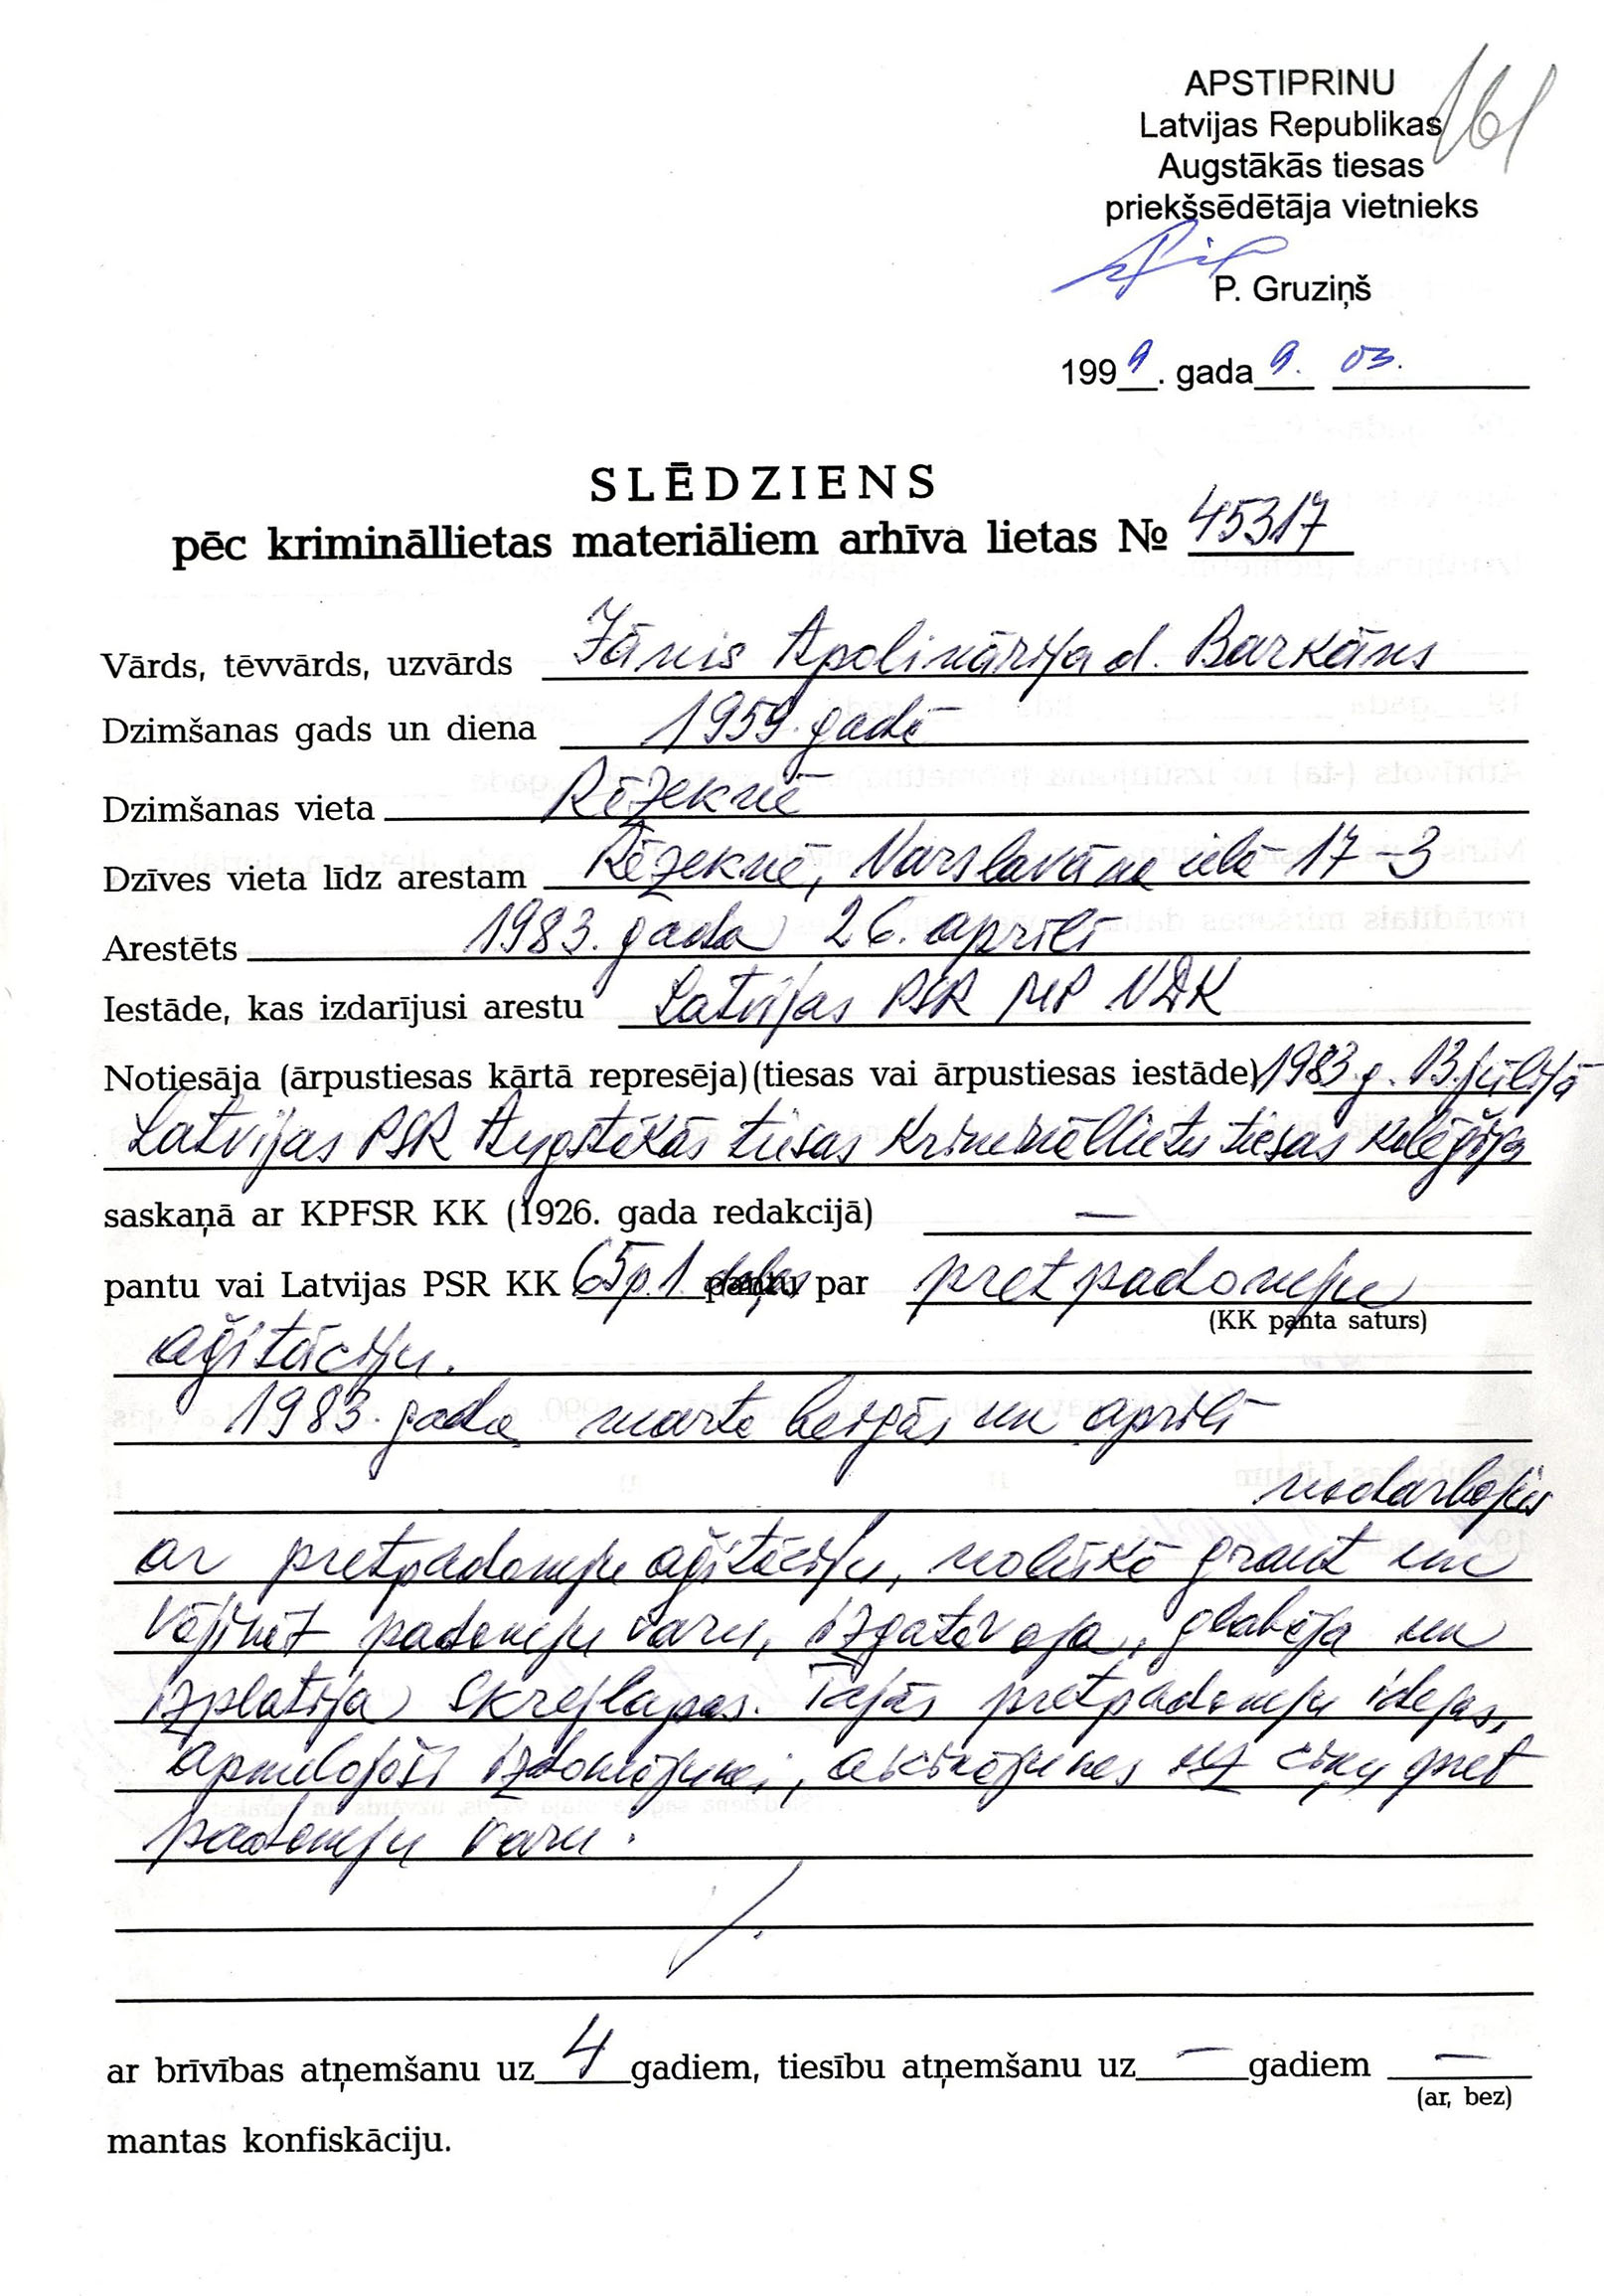 161
APSTIPRINU
Latvijas Republikas
Augstākās tiesas
priekšsēdētāja vietnieks
P. Gruziņš
1999. gada 9. 03.
SLĒDZIENS
pēc krimināllietas materiāliem arhīva lietas № 45317
Vārds, tēvvārds, uzvārds Jānis Apolinārija d. Barkāns
Dzimšanas gads un diena 1959. gadā
Dzimšanas vieta Rēzeknē
Dzīves vieta līdz arestam Rēzeknē, Varslavāna ielā 17-3
Arestēts 1983. gada 26. aprīlī
Iestāde, kas izdarījusi arestu Latvijas PSR MP VDK
Notiesāja (ārpustiesas kārtā represēja) (tiesas vai ārpustiesas iestāde) 1983.g. 13. jūlijā
Latvijas PSR Augstākās tiesas Krimināllietu tiesas kolēģija
saskaņā ar KPFSR KK (1926. gada redakcijā) —
pantu vai Latvijas PSR KK 65 p. 1. daļas pantu par pretpadomju
(KK panta saturs)
aģitāciju.
1983. gada marta beigās un aprīlī
nodarbojies
ar pretpadomju aģitāciju, nolūkā graut un
vājināt padomju varu, izgatavoja, glabāja un
izplatīja skrejlapas. Tajās pretpadomju idejas,
apmelojoši izdomājumi, aicinājumes uz cīņu pret
padomju varu.
ar brīvības atņemšanu uz 4 gadiem, tiesību atņemšanu uz — gadiem —
(ar, bez)
mantas konfiskāciju.